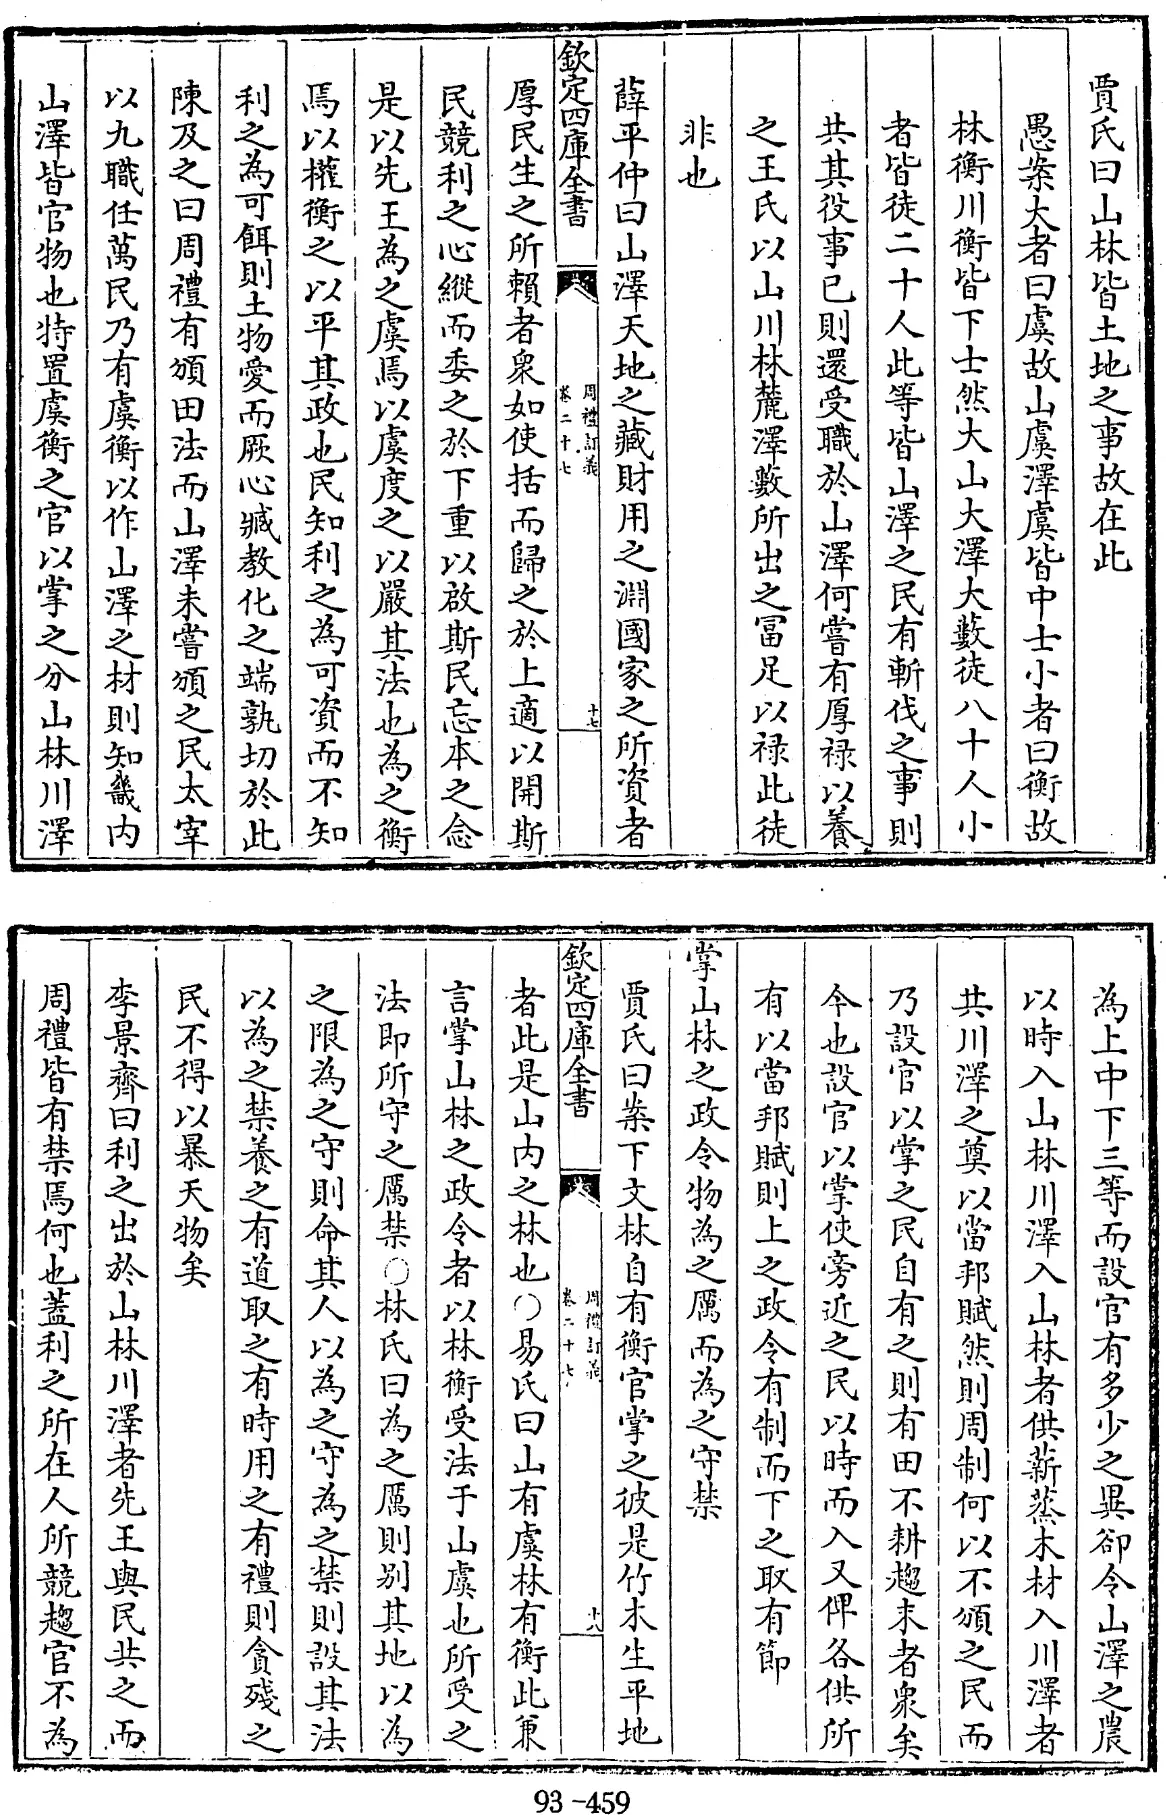 賈氏曰山林皆土地之事故在此
愚案大者曰虞故山虞澤虞皆中士小者曰衡故
林衡川衡皆下士然大山大澤大藪徒八十人小
者皆徒二十人此等皆山澤之民有斬伐之事則
共其役事已則還受職於山澤何嘗有厚禄以養
之王氏以山川林麓澤藪所出之冨足以禄此徒
非也
薛平仲曰山澤天地之藏財用之淵國家之所資者
欽定四庫全書
周禮訂義
卷二十七
十七
厚民生之所賴者衆如使括而歸之於上適以開斯
民競利之心縱而委之於下重以啟斯民忘本之念
是以先王為之虞焉以虞度之以嚴其法也為之衡
焉以權衡之以平其政也民知利之為可資而不知
利之為可餌則土物愛而厥心臧教化之端孰切於此
陳及之曰周禮有頒田法而山澤未嘗頒之民太宰
以九職任萬民乃有虞衡以作山澤之材則知畿内
山澤皆官物也特置虞衡之官以掌之分山林川澤
為上中下三等而設官有多少之異卻令山澤之農
以時入山林川澤入山林者供薪蒸木材入川澤者
共川澤之奠以當邦賦然則周制何以不頒之民而
乃設官以掌之民自有之則有田不耕趨末者衆矣
今也設官以掌使旁近之民以時而入又俾各供所
有以當邦賦則上之政令有制而下之取有節
掌山林之政令物為之厲而為之守禁
賈氏曰案下文林自有衡官掌之彼是竹木生平地
欽定四庫全書
周禮訂義
卷二十七
十八
者此是山内之林也○易氏曰山有虞林有衡此兼
言掌山林之政令者以林衡受法于山虞也所受之
法即所守之厲禁○林氏曰為之厲則別其地以為
之限為之守則命其人以為之守為之禁則設其法
以為之禁養之有道取之有時用之有禮則貪殘之
民不得以暴天物矣
李景齊曰利之出於山林川澤者先王與民共之而
周禮皆有禁焉何也蓋利之所在人所競趨官不為
93-459